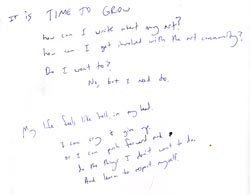 IT IS TIME TO GROW
how can I write about my art?
how can I get involved with the art community?
Do I want to?
No, but I need to.
My life feels like hell, in my head.
I can cry & give up.
or I can push forward and
do the things I don't want to do.
And learn to respect myself.